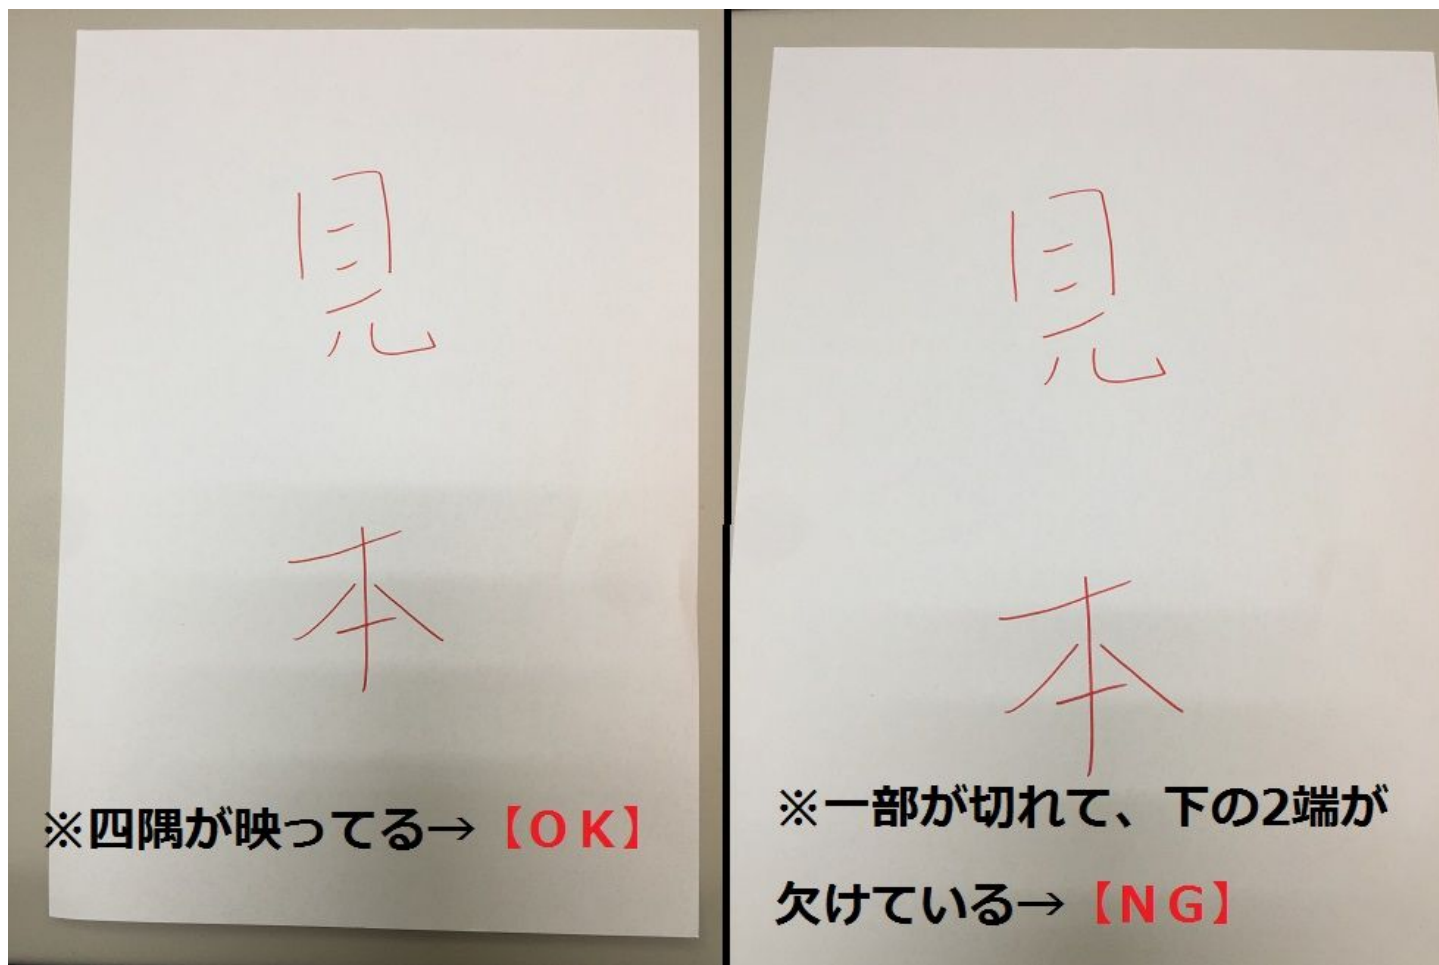 見
本
※四隅が映ってる→【OK】
見
本
※一部が切れて、下の2端が
欠けている→【NG】